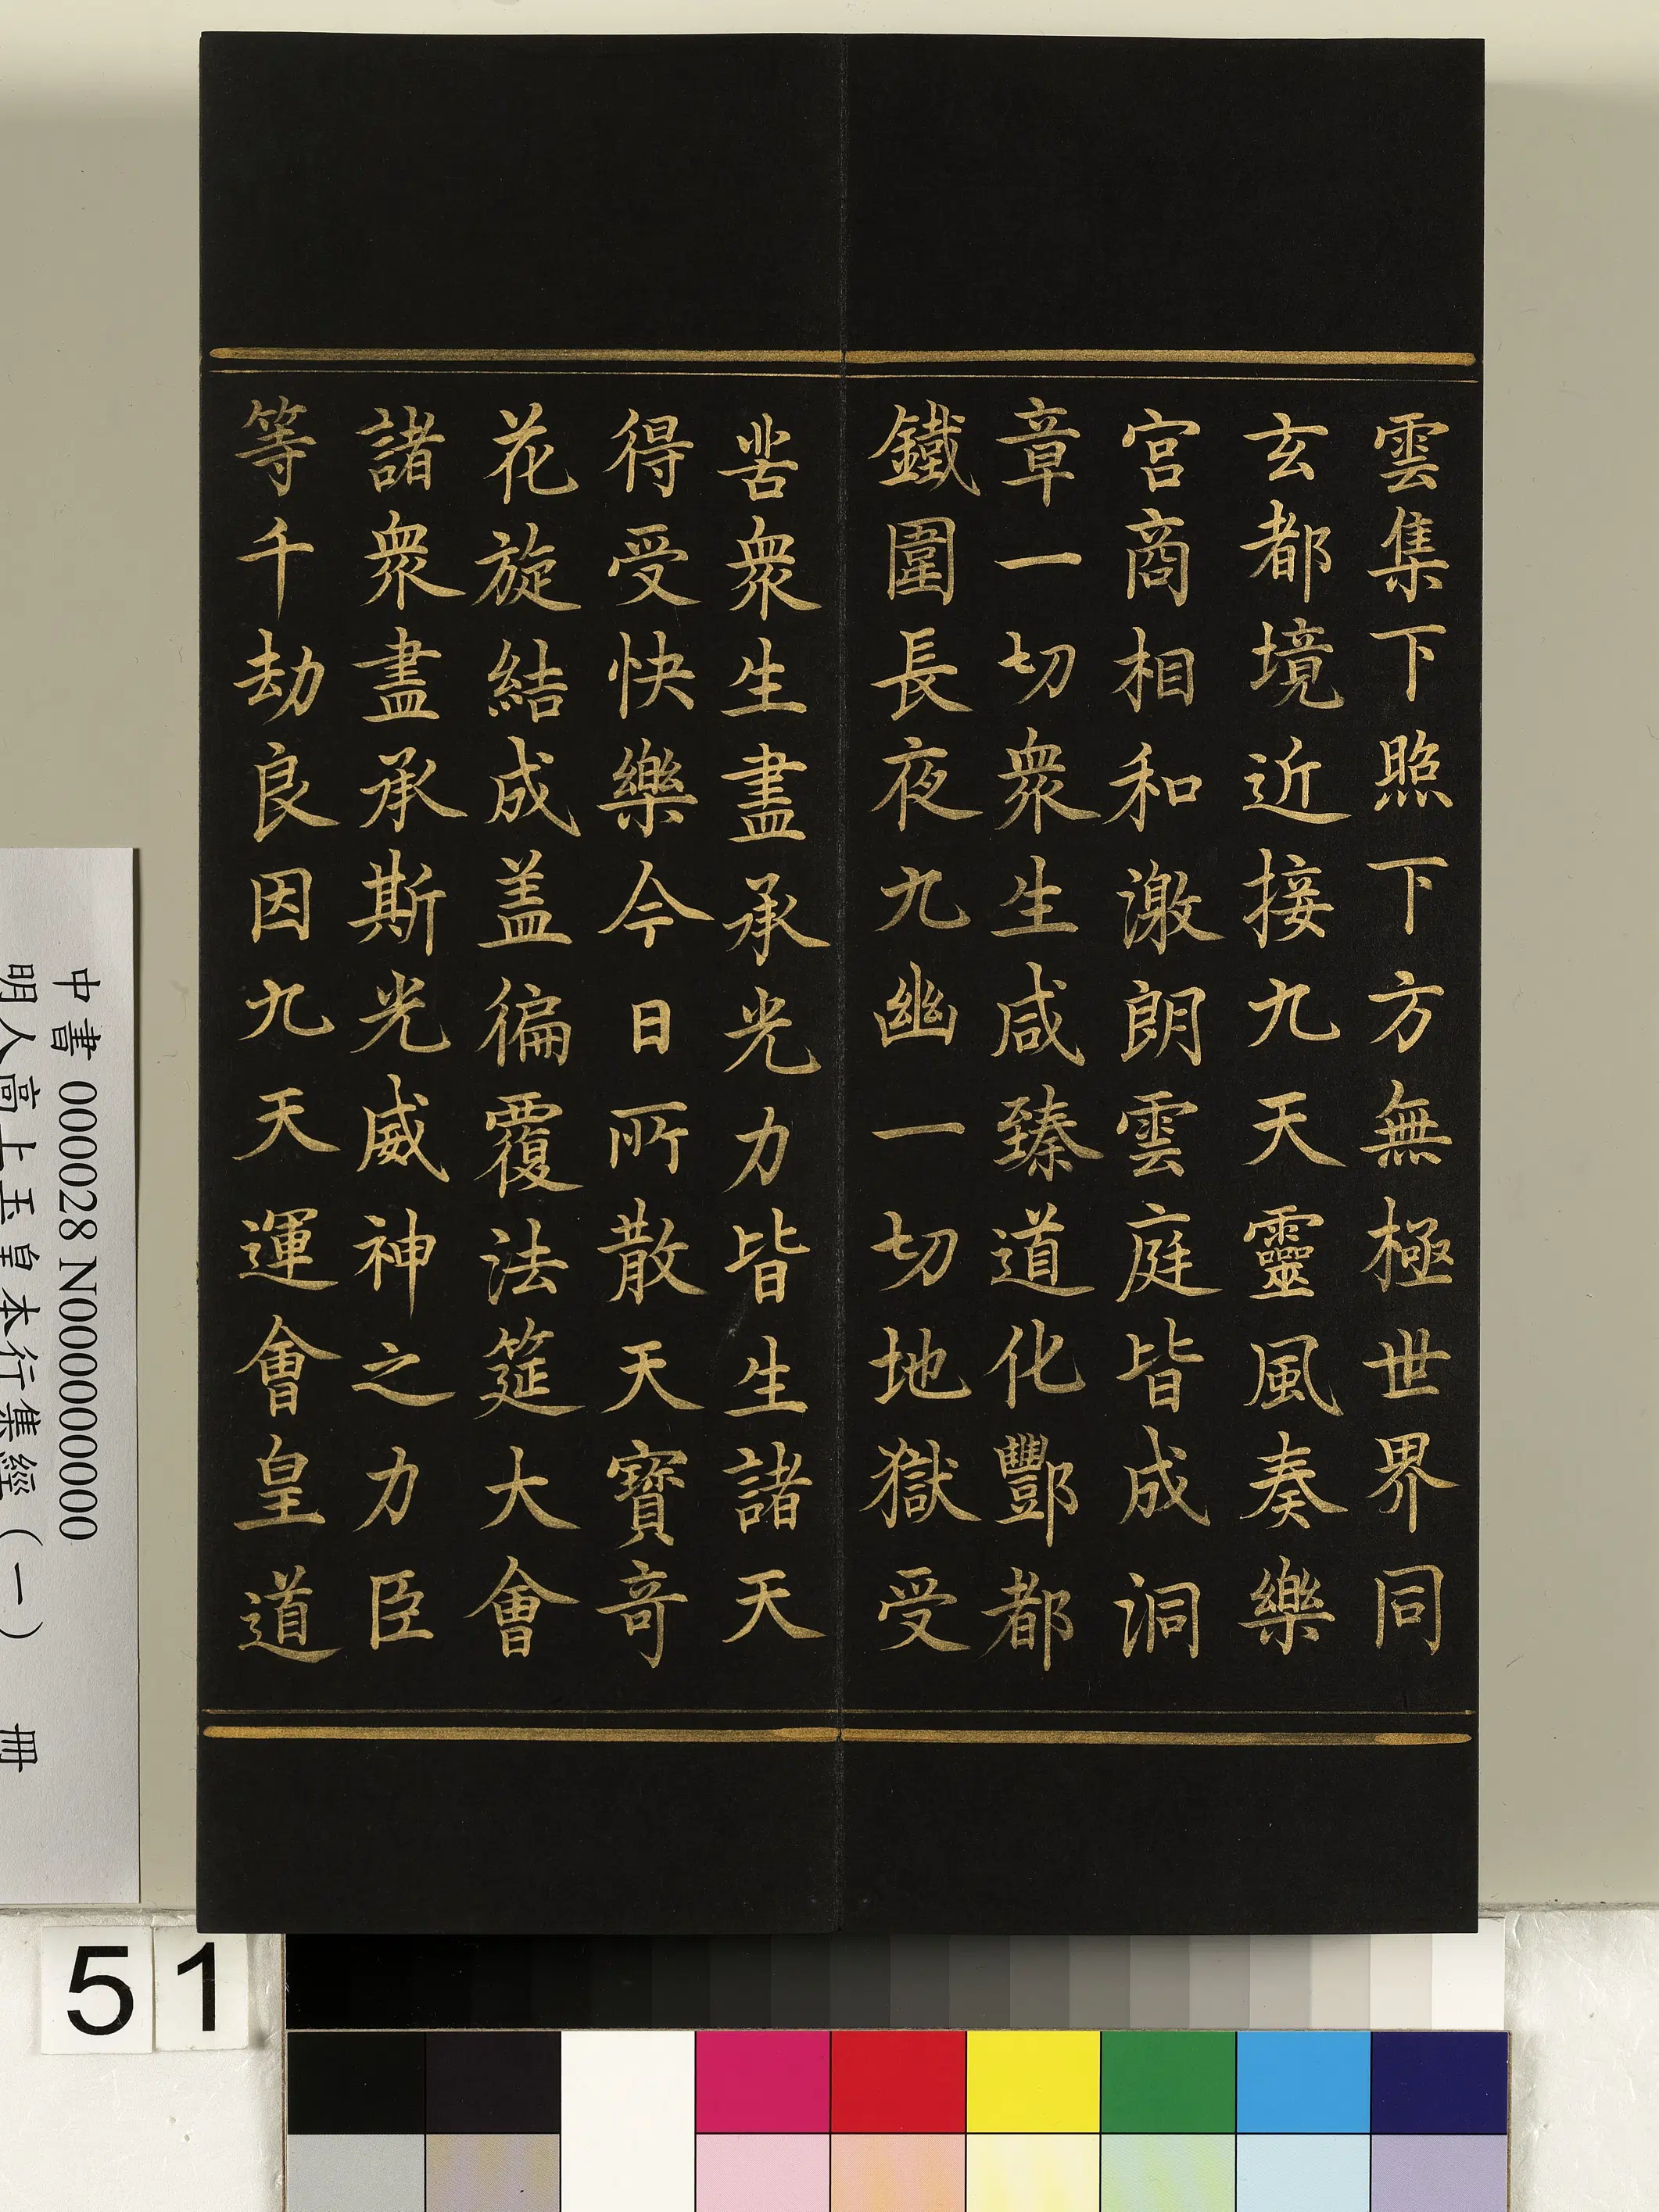 雲集下照下方無極世界同
玄都境近接九天靈風奏樂
宮商相和激朗雲庭皆成洞
章一切衆生咸臻道化酆都
鐵圍長夜九幽一切地獄受
苦衆生盡承光力皆生諸天
得受快樂今日所散天寶奇
花旋結成盖徧覆法筵大會
諸衆盡承斯光威神之力臣
等千劫良因九天運會皇道
中書 000028 N000000000
明人高上玉皇本行集經（一） 冊
51